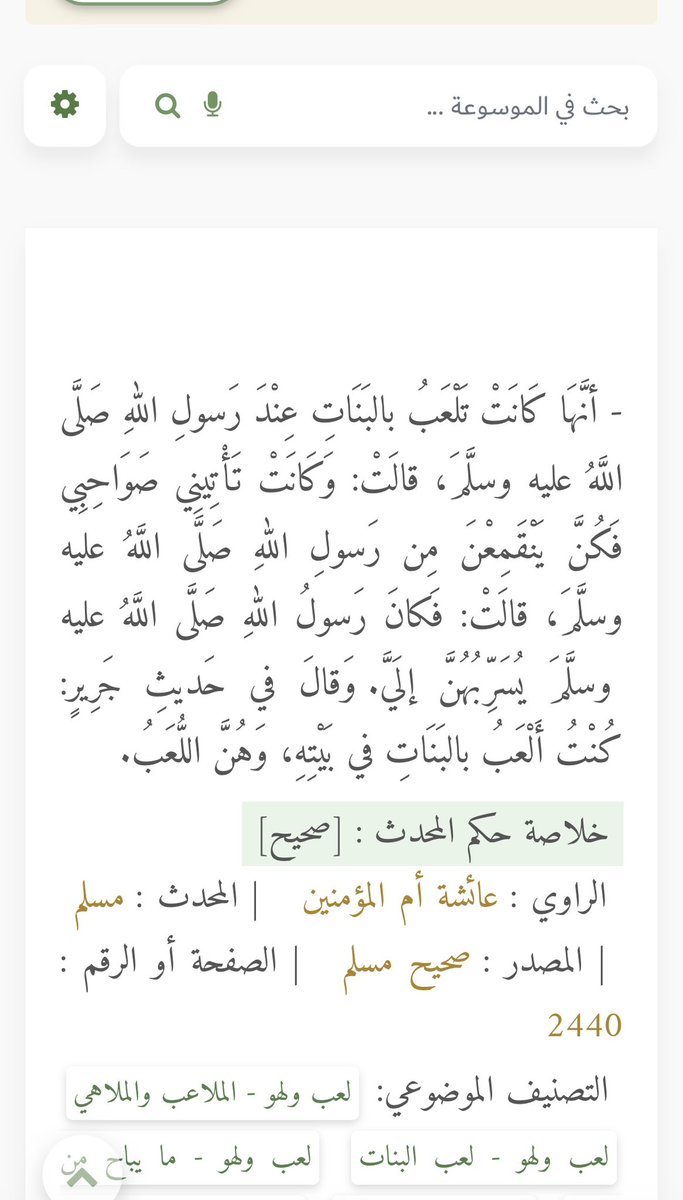 بحث في الموسوعة ...
- أنَّهَا كَانَتْ تَلْعَبُ بالبَنَاتِ عِنْدَ رَسولِ اللهِ صَلَّى
اللَّهُ عليه وسلَّمَ، قالَتْ: وَكَانَتْ تَأْتِينِي صَوَاحِبِي
فَكُنَّ يَنْقَمِعْنَ مِن رَسولِ اللهِ صَلَّى اللَّهُ عليه
وسلَّمَ، قالَتْ: فَكانَ رَسولُ اللهِ صَلَّى اللَّهُ عليه
وسلَّمَ يُسَرِّبُهُنَّ إلَيَّ. وَقالَ في حَديثِ جَرِيرٍ:
كُنْتُ أَلْعَبُ بالبَنَاتِ في بَيْتِهِ، وَهُنَّ اللُّعَبُ.
خلاصة حكم المحدث : [صحيح]
الراوي : عائشة أم المؤمنين | المحدث : مسلم
| المصدر : صحيح مسلم | الصفحة أو الرقم :
2440
التصنيف الموضوعي: لعب ولهو - الملاعب والملاهي
لعب ولهو - لعب البنات لعب ولهو - ما يباح من